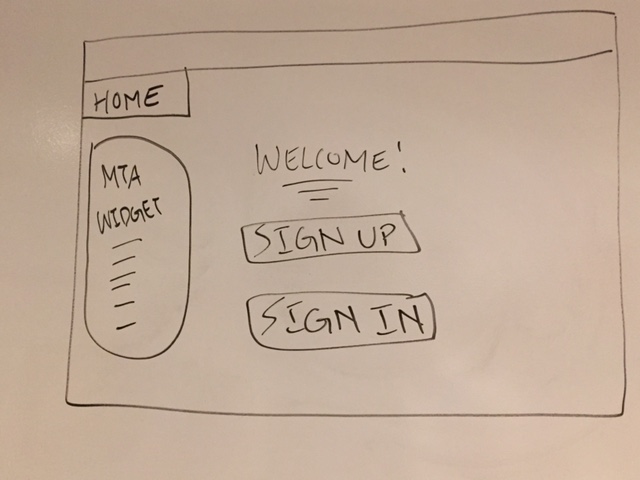 HOME
MTA
WIDGET
WELCOME!
SIGN UP
SIGN IN